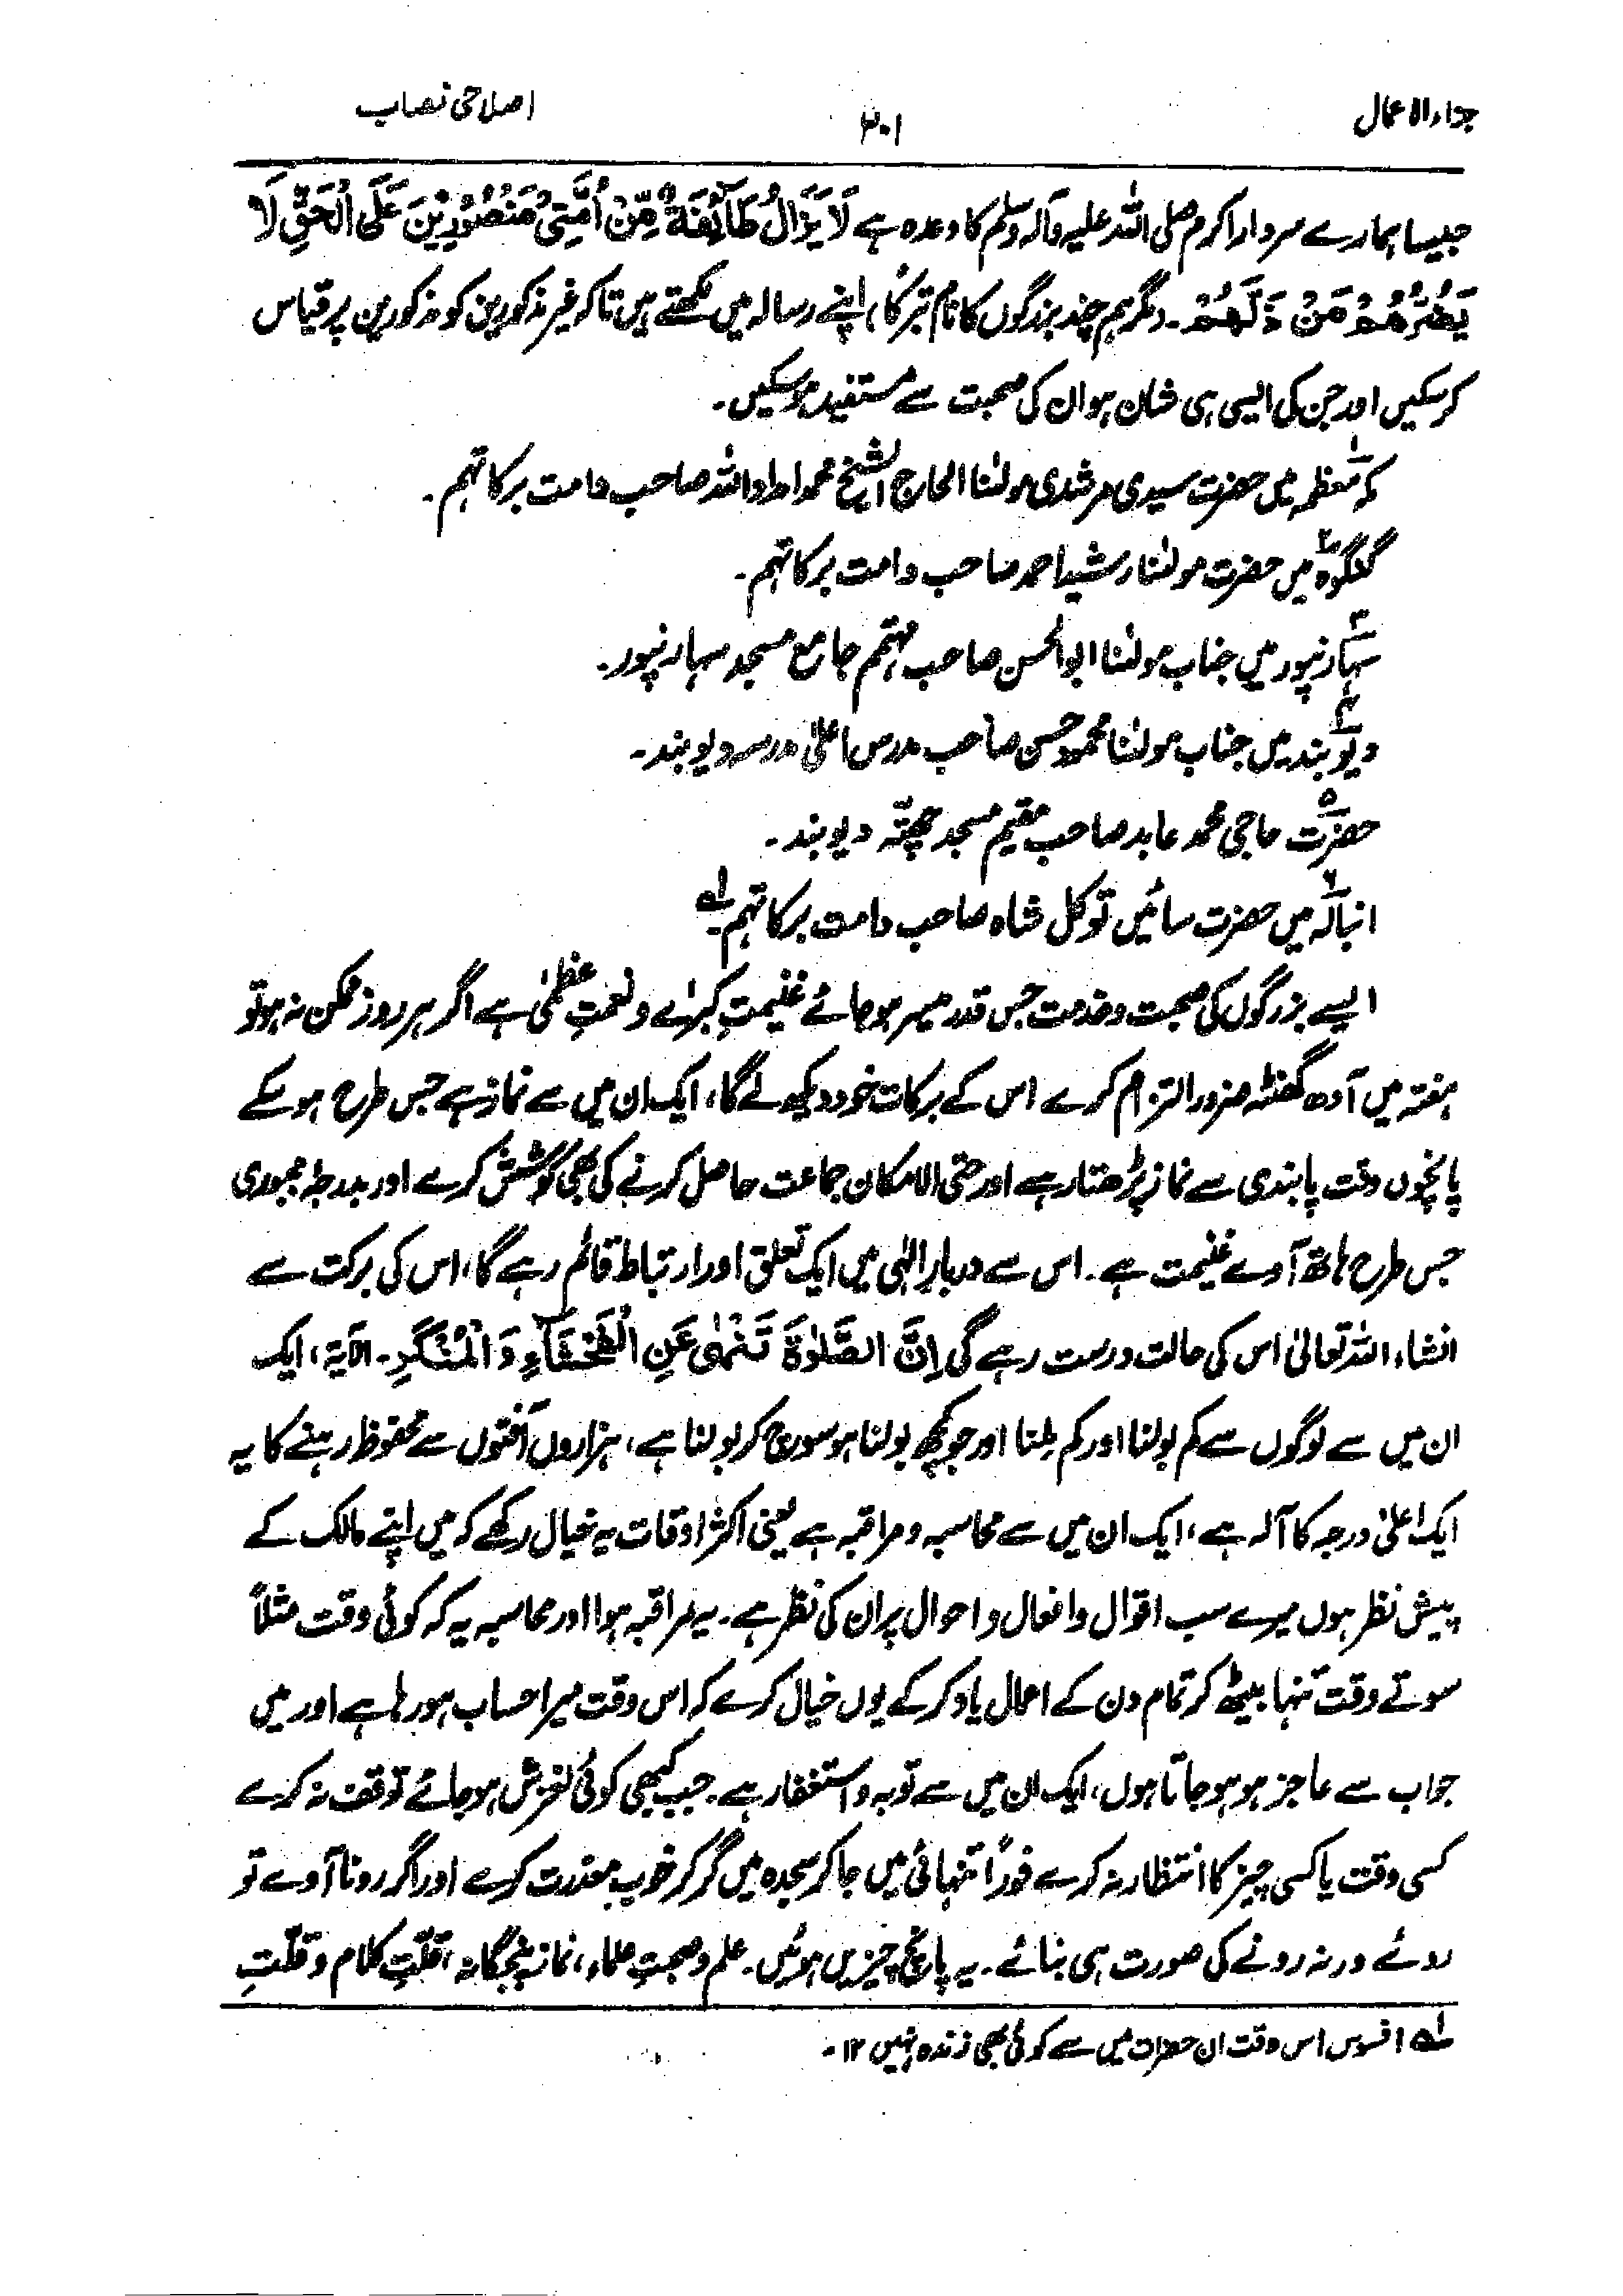 جزاء الاعمال
۳۰۱
اصلاحی نصاب
جیسا ہمارے سردار اکرم صلی اللہ علیہ وآلہ وسلم کا وعدہ ہے لَا یَزَالُ طَآئِفَةٌ مِّنْ اُمَّتِیْ مَنْصُوْرِیْنَ عَلَی الْحَقِّ لَا
یَضُرُّهُمْ مَنْ خَذَلَهُمْ۔ مگر ہم چند بزرگوں کا نام تبرکًا، اپنے رسالہ میں لکھتے ہیں تاکہ غیر مذکورین کو مذکورین پر قیاس
کر سکیں اور جن کی ایسی ہی شان ہو ان کی صحبت سے مستفید ہو سکیں۔
۱ مکہ معظمہ میں حضرت سیدی مرشدی مولٰنا الحاج الشیخ محمد امداد اللہ صاحب دامت برکاتہم۔
۲ گنگوہ میں حضرت مولٰنا رشید احمد صاحب دامت برکاتہم۔
۳ سہارنپور میں جناب مولٰنا ابوالحسن صاحب مہتمم جامع مسجد سہارنپور۔
۴ دیوبند میں جناب مولٰنا محمود حسن صاحب مدرس اعلیٰ مدرسہ دیوبند۔
۵ حضرت حاجی محمد عابد صاحب مقیم مسجد چھتّہ دیوبند۔
۶ انبالہ میں حضرت سائیں توکل شاہ صاحب دامت برکاتہم۔ لہ
ایسے بزرگوں کی صحبت و خدمت جس قدر میسر ہو جائے غنیمتِ کبرٰے و نعمتِ عظمیٰ ہے اگر ہر روز ممکن نہ ہو تو
ہفتہ میں آدھ گھنٹہ ضرور التزام کرے اس کے برکات خود دیکھ لے گا، ایک ان میں سے نماز ہے جس طرح ہو سکے
پانچوں وقت پابندی سے نماز پڑھتا رہے اور حتی الامکان جماعت حاصل کرنے کی بھی کوشش کرے اور بدرجہ مجبوری
جس طرح ہاتھ آوے غنیمت ہے۔ اس سے دربارِ الٰہی میں ایک تعلق اور ارتباط قائم رہے گا، اس کی برکت سے
انشاء اللہ تعالیٰ اس کی حالت درست رہے گی اِنَّ الصَّلٰوةَ تَنْهٰی عَنِ الْفَحْشَآءِ وَ الْمُنْكَرِ۔ الآیۃ، ایک
ان میں سے لوگوں سے کم بولنا اور کم ملنا اور جو کچھ بولنا ہو سوچ کر بولنا ہے، ہزاروں آفتوں سے محفوظ رہنے کا یہ
ایک اعلیٰ درجہ کا آلہ ہے، ایک ان میں سے محاسبہ و مراقبہ ہے یعنی اکثر اوقات یہ خیال رکھے کہ میں اپنے مالک کے
پیش نظر ہوں میرے سب اقوال و افعال و احوال پر ان کی نظر ہے۔ یہ مراقبہ ہوا اور محاسبہ یہ کہ کوئی وقت مثلاً
سوتے وقت تنہا بیٹھ کر تمام دن کے اعمال یاد کر کے یوں خیال کرے کہ اس وقت میرا حساب ہو رہا ہے اور میں
جواب سے عاجز ہو ہو جاتا ہوں، ایک ان میں سے توبہ و استغفار ہے۔ جب کبھی کوئی لغزش ہو جائے توقف نہ کرے
کسی وقت یا کسی چیز کا انتظار نہ کرے فوراً تنہائی میں جا کر سجدہ میں گر کر خوب معذرت کرے اور اگر رونا آوے تو
روئے ورنہ رونے کی صورت ہی بنائے۔ یہ پانچ چیزیں ہوئیں۔ علم و صحبتِ علماء، نماز پنجگانہ، قلّتِ کلام و قلّتِ
لہ افسوس اس وقت ان حضرات میں سے کوئی بھی زندہ نہیں ۱۲۔